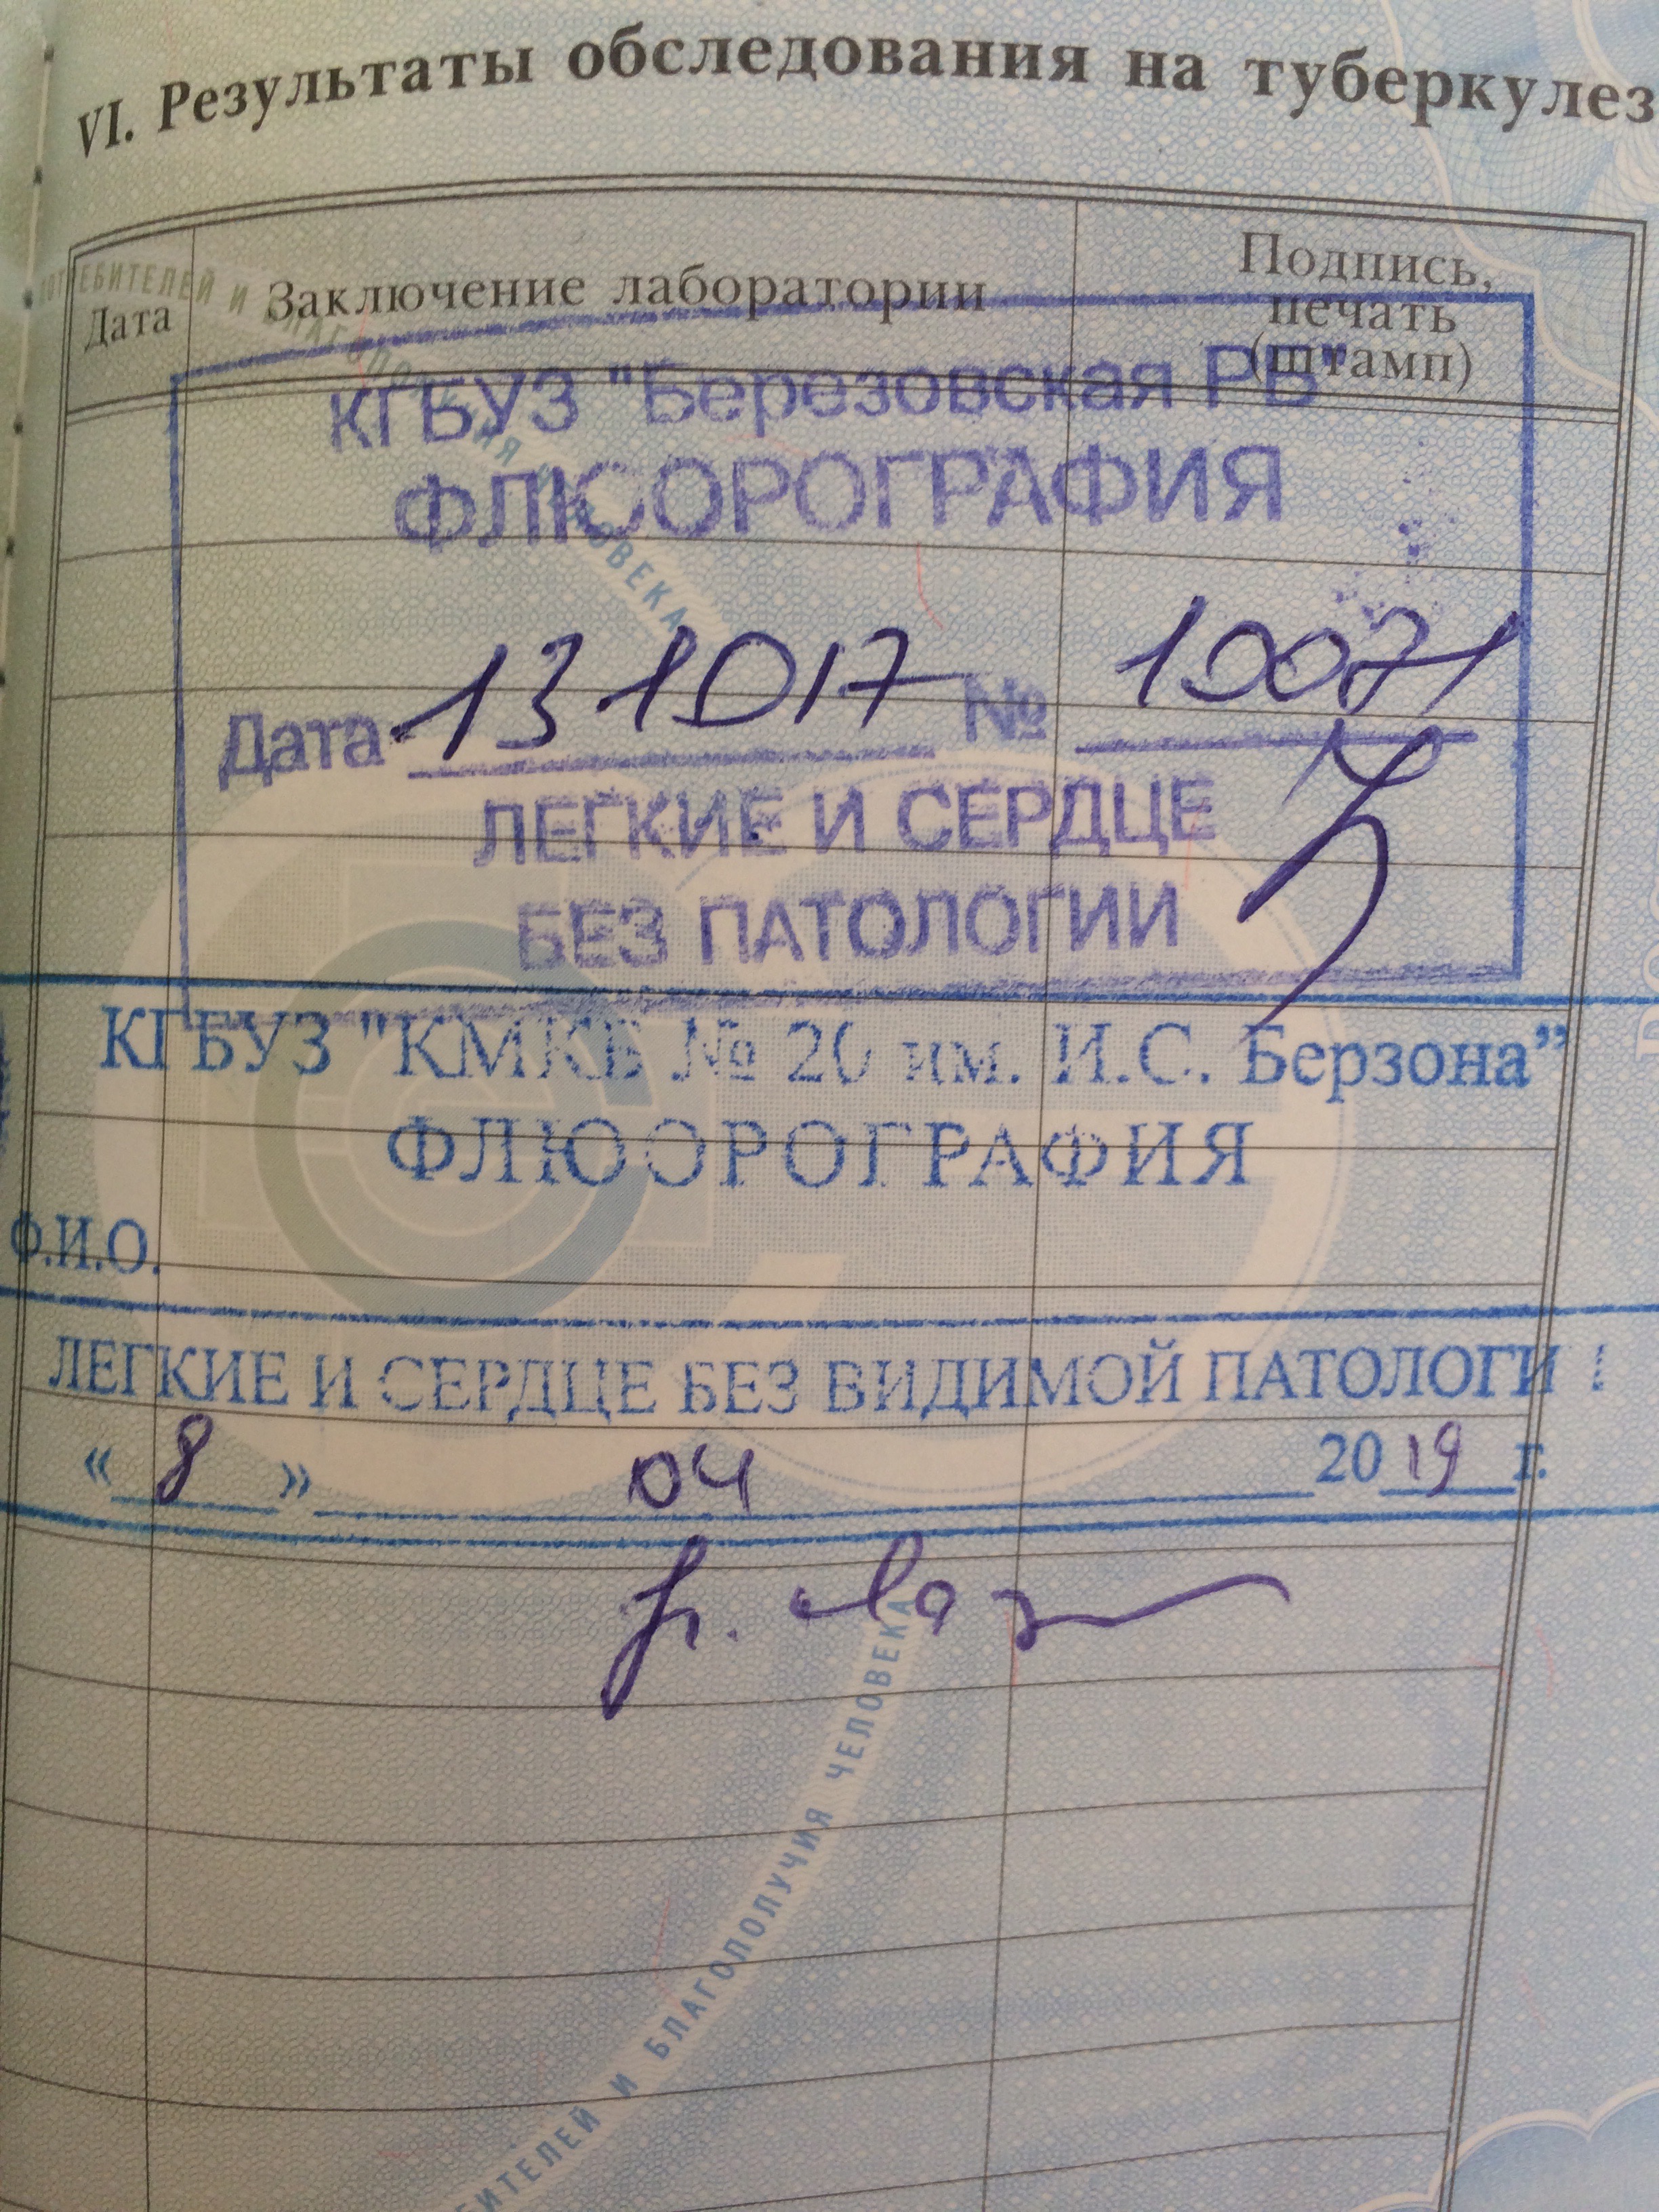 VI. Результаты обследования на туберкулез
Дата
Заключение лаборатории
Подпись,
печать
(штамп)
КГБУЗ "Березовская РБ"
ФЛЮОРОГРАФИЯ
Дата 13 10 17 № 10071
ЛЕГКИЕ И СЕРДЦЕ
БЕЗ ПАТОЛОГИИ
КГБУЗ "КМКБ № 20 им. И.С. Берзона”
ФЛЮОРОГРАФИЯ
Ф.И.О.
ЛЕГКИЕ И СЕРДЦЕ БЕЗ ВИДИМОЙ ПАТОЛОГИИ
« 8 » 04 2019 г.
ПОТРЕБИТЕЛЕЙ И БЛАГОПОЛУЧИЯ ЧЕЛОВЕКА
БИТЕЛЕЙ И БЛАГОПОЛУЧИЯ ЧЕЛОВЕКА